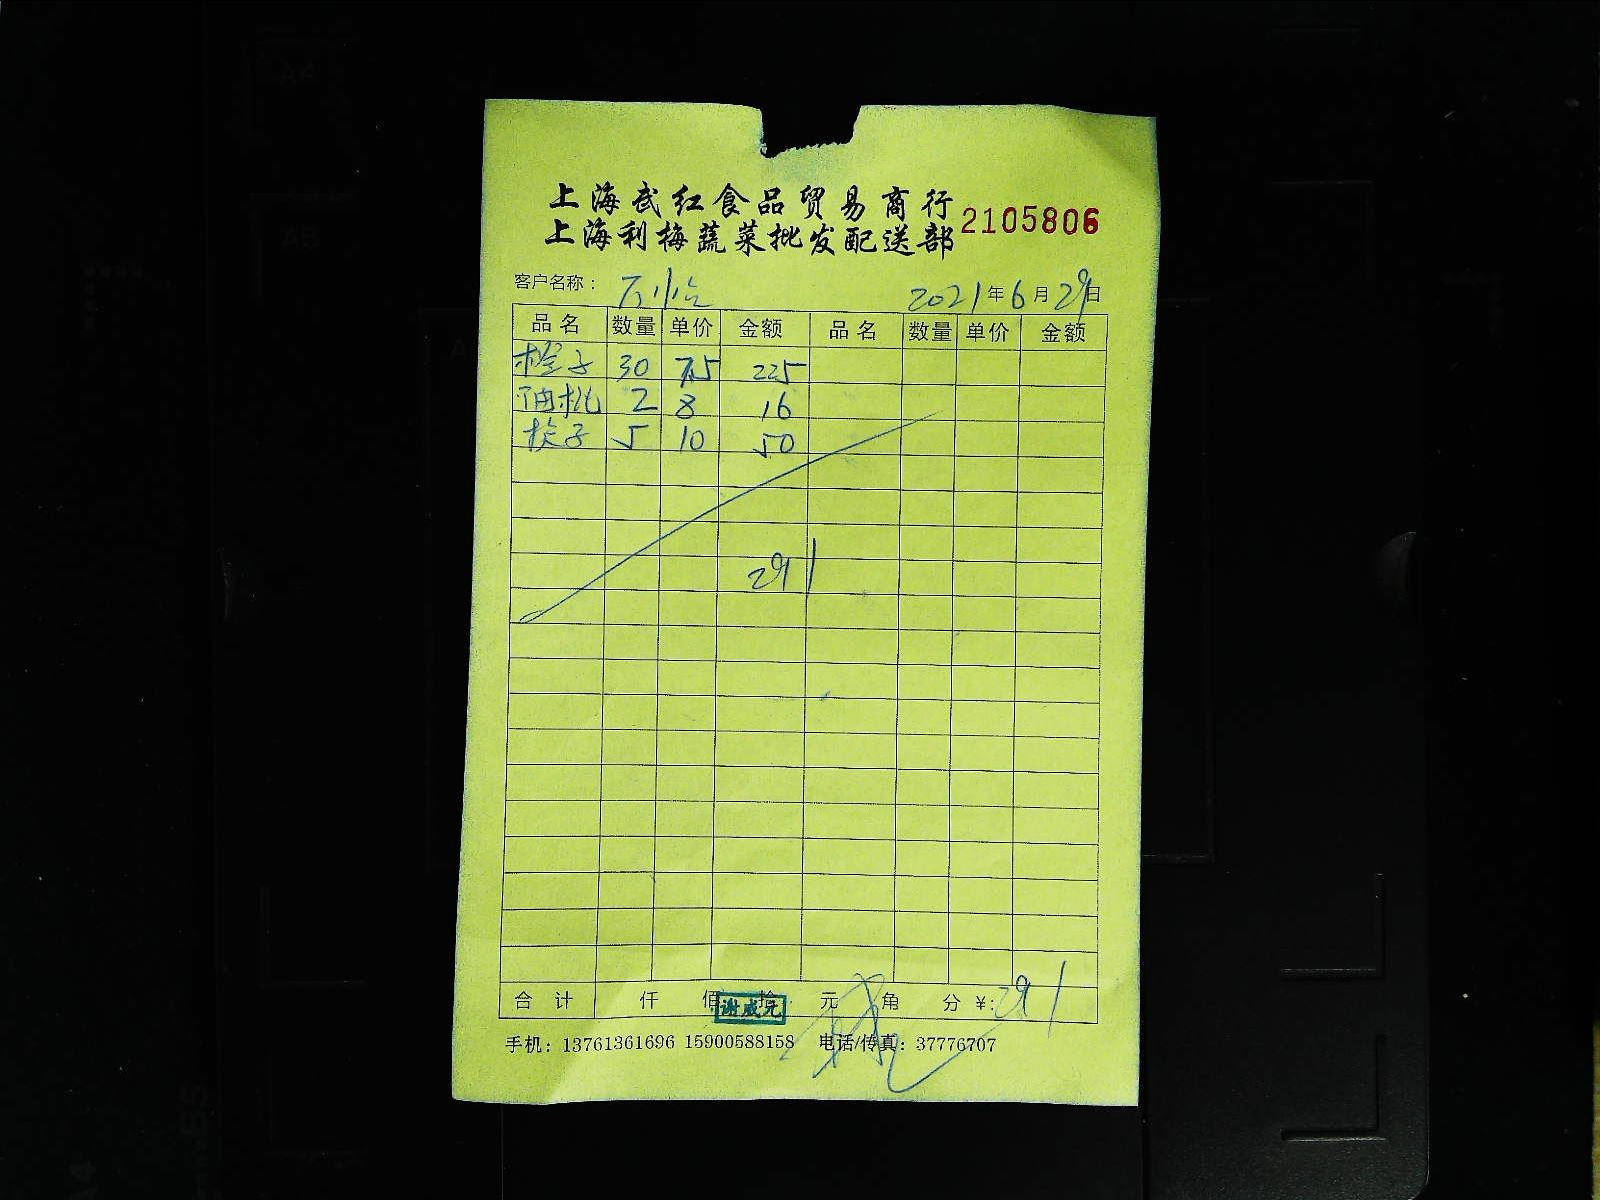 上海武红食品贸易商行
上海利梅蔬菜批发配送部 2105806
客户名称： 2021年6月29日
品名 数量 单价 金额 品名 数量 单价 金额
橙子 30 7.5 225
油桃 2 8 16
桉子 5 10 50
291
合计 仟 佰 拾 元 角 分 ¥: 291
谢威元
手机：13761361696 15900588158 电话/传真：37776707